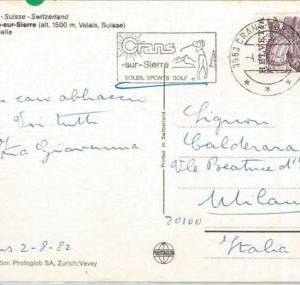 - Suisse - Switzerland
-sur-Sierre (alt. 1500 m, Valais, Suisse)
Crans
-sur-Sierre
SOLEIL SPORTS GOLF
HELVETIA
Un caro abbraccio
a Voi tutti
Zia Giovanna
2-8-82
Printed in Switzerland
Signori
Calderara
V.le Beatrice d'E
20100
Milano
Italia
tion Photoglob SA, Zurich/Vevey